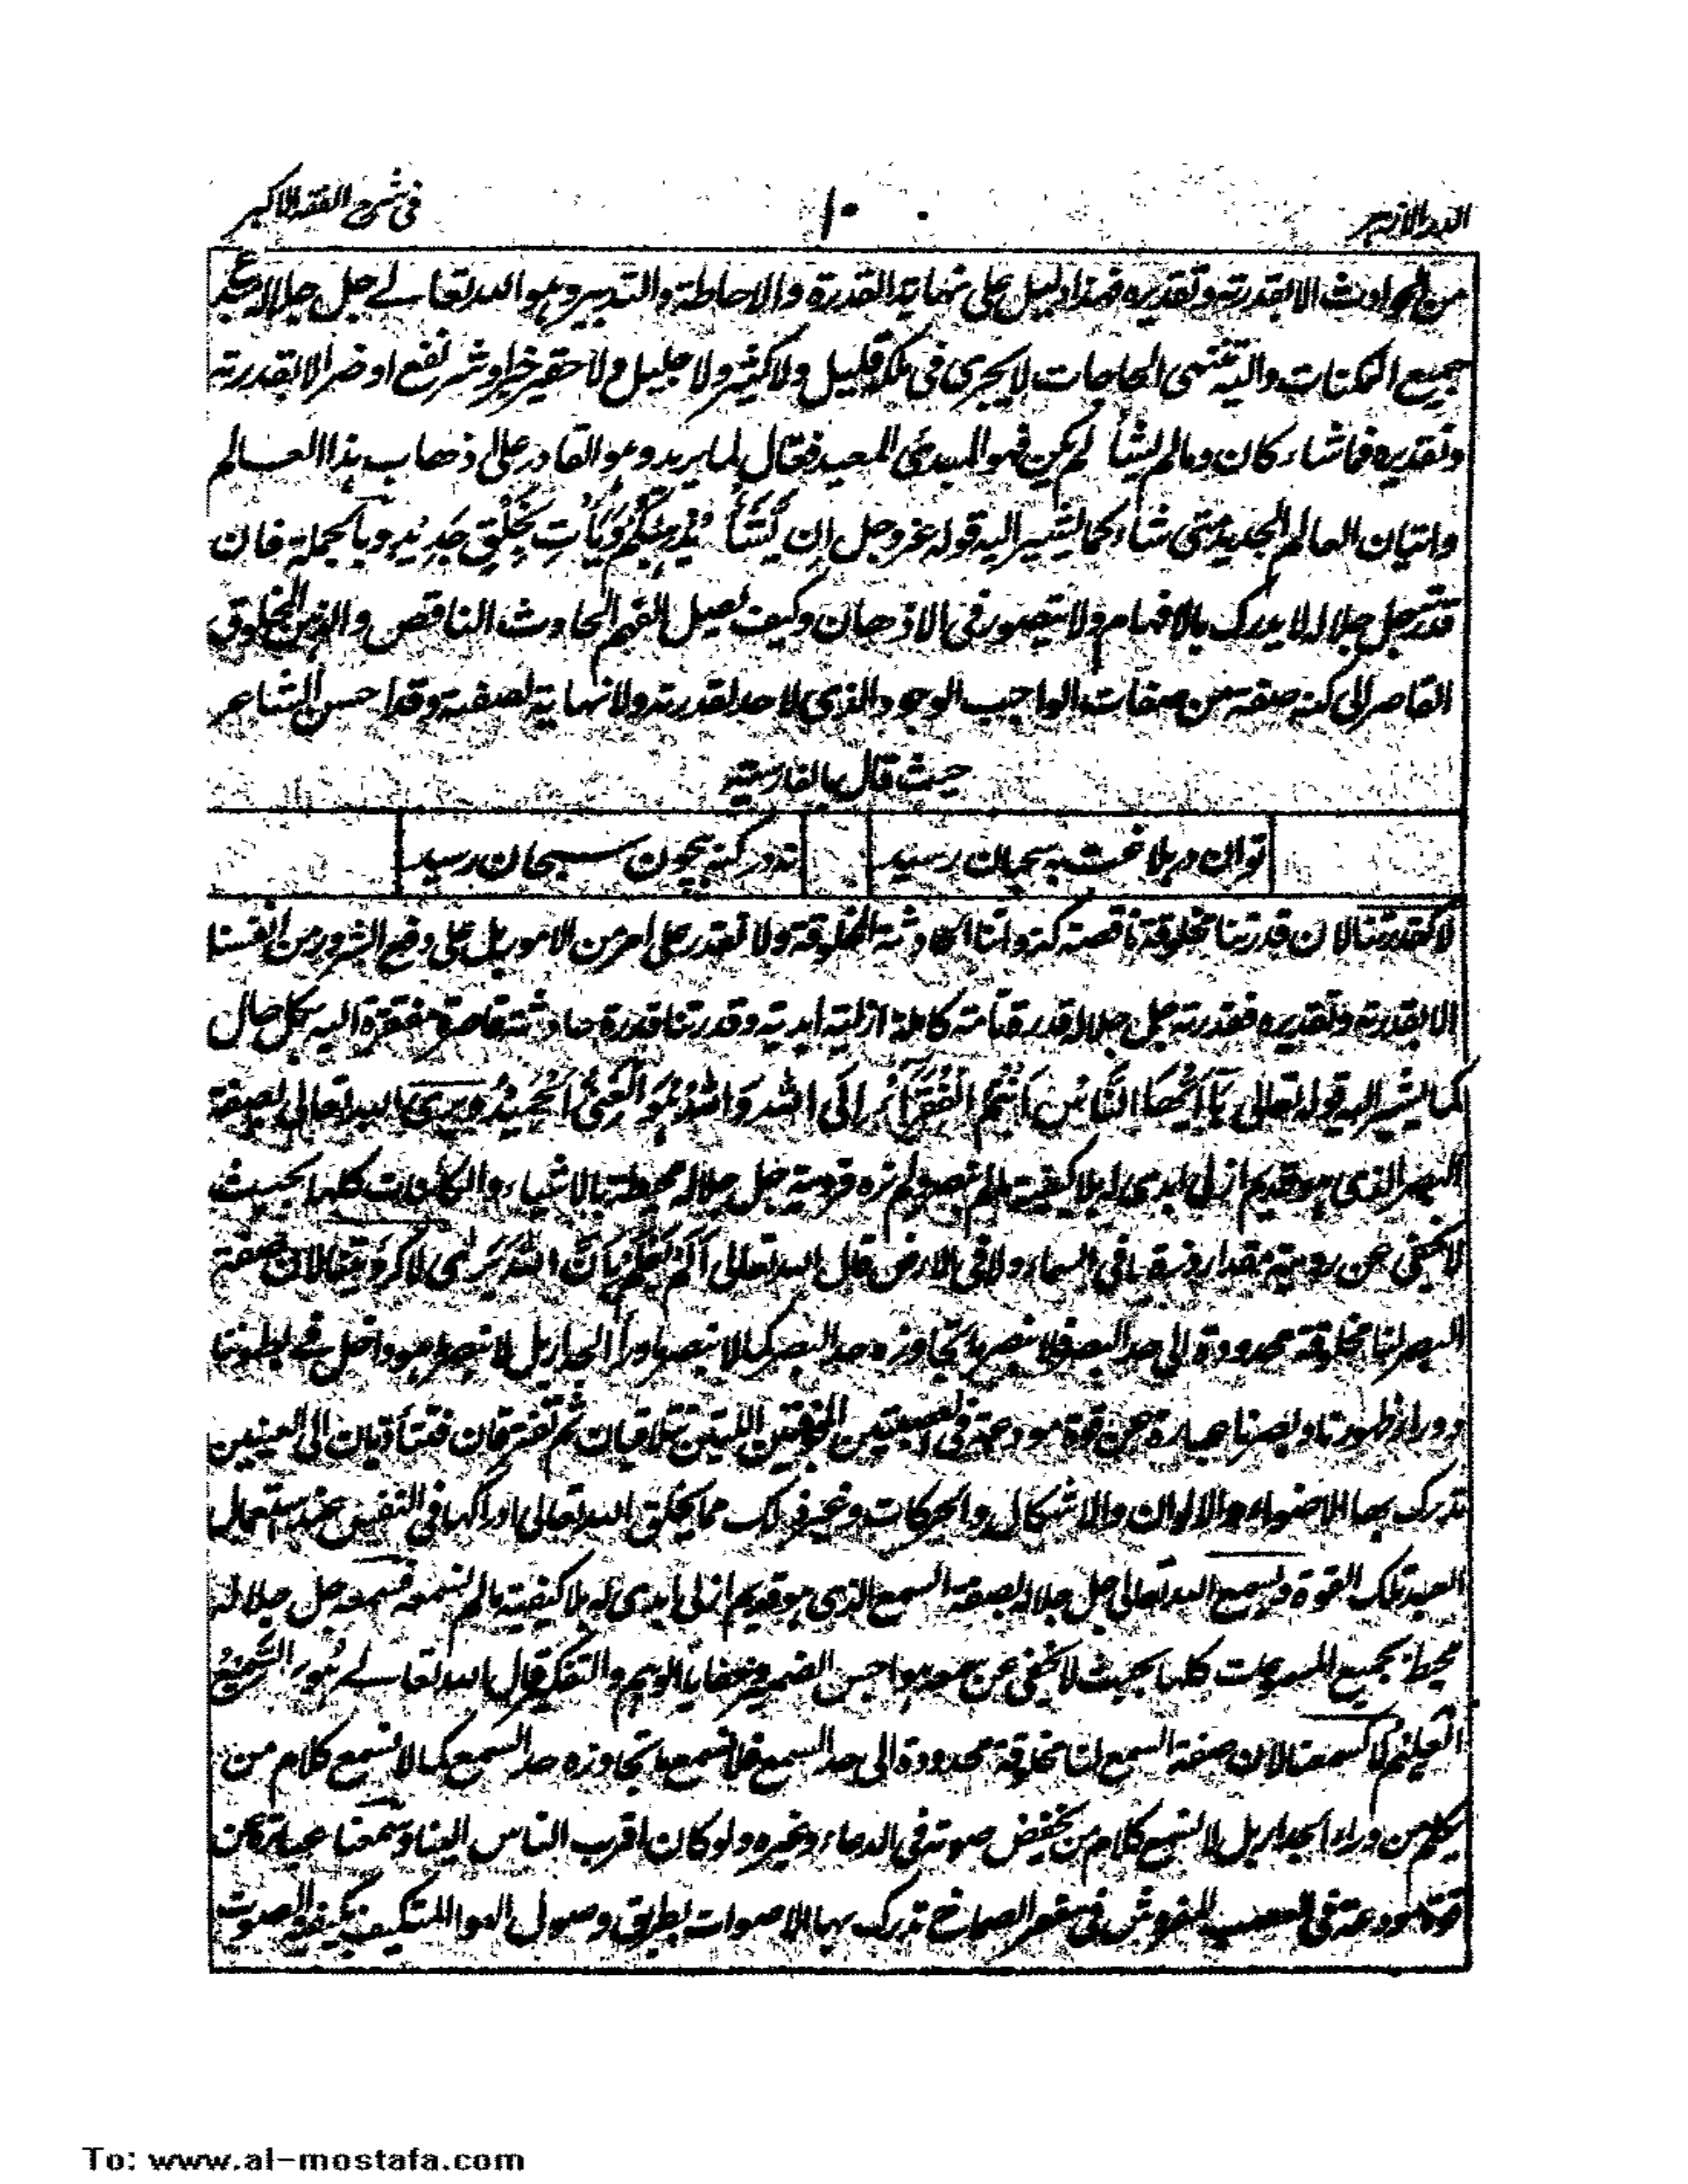 البدر الازهر
١٠
في شرح الفقه الاكبر
من الحوادث الا بقدرته وتقديره فهذا دليل على نهاية القدرة والاحاطة والتدبير وهو الله تعالے جل جلاله
جميع الممكنات واليه تنتهى الحاجات لا يجرى فى ملكه قليل ولا كثير ولا جليل ولا حقير خير او شر نفع او ضر الا بقدرته
وتقديره فما شاء كان وما لم يشأ لم يكن فهو المبدئ المعيد فعّال لما يريد وهو القادر على ذهاب هذا العالم
واتيان العالم الجديد متى شاء كما يشير اليه قوله عز وجل اِن يَّشَأْ يُذْهِبْكُمْ وَيَأْتِ بِخَلْقٍ جَدِيْدٍ وبالجملة فان
قدرته جل جلاله لا يدرك بالافهام ولا يتصور فى الاذهان وكيف يصل الفهم الحادث الناقص والذهن المخلوق
القاصر الى كنه صفة من صفات الواجب الوجود الذى لا حد لقدرته ولا نهاية لصفته وقد احسن الشاعر
حيث قال بالفارسية
توان در بلاغت به سحبان رسيد
نه در كنه بيچون سبحان رسيد
لا كقدرتنا لان قدرتنا مخلوقة ناقصة كذواتنا الحادثة المخلوقة ولا نقدر على امر من الامور بل على دفع الشرور من انفسنا
الا بقدرته وتقديره فقدرته جل جلاله قدرة تامة كاملة ازلية ابدية وقدرتنا قدرة حادثة قاصرة مفتقرة اليه بكل حال
كما يشير اليه قوله تعالى يَآ اَيُّهَا النَّاسُ اَنْتُمُ الْفُقَرَآءُ اِلَى اللّٰهِ وَاللّٰهُ هُوَ الْغَنِىُّ الْحَمِيْدُ ويرى الله تعالى بصفة
البصر الذى هو قديم ازلى ابدى له بلا كيفية ما لم نبصر ولم نره فرؤيته جل جلاله محيطة بالاشياء والكائنات كلها بحيث
لا يخفى عن رويته مقدار ذرة ما فى السماء ولا فى الارض قال الله تعالى اَلَمْ يَعْلَمْ بِاَنَّ اللّٰهَ يَرٰى لا كرؤيتنا لان صفة
البصر لنا مخلوقة محدودة الى حد البصر فلا نبصر ما تجاوزه حد البصر كما لا نبصر ما وراء الجدار بل لا نبصر ما هو داخل فے بطوننا
ووراء ظهورنا وبصرنا عبارة عن قوة مودعة فى العصبتين المجوفتين اللتين تتلاقيان ثم تفترقان فتتأديان الى العينين
تدرك بها الاضواء والالوان والاشكال والحركات وغير ذلك مما يخلق الله تعالى ادراكها فى النفس عند استعمال
العبد تلك القوة ويسمع الله تعالى جل جلاله بصفة السمع الذى هو قديم ازلى ابدى له بلا كيفية ما لم نسمعه فسمعه جل جلاله
محيط بجميع المسموعات كلها بحيث لا يخفى عن سمعه هواجس الضمير وخفايا الوهم والتفكر قال الله تعالے هُوَ السَّمِيْعُ
الْعَلِيْمُ لا كسمعنا لان صفة السمع لنا مخلوقة محدودة الى حد السمع فلا نسمع ما تجاوزه حد السمع كما لا نسمع كلام من
يكلم من وراء الجدار بل لا نسمع كلام من يخفض صوته فى الدعاء وغيره ولو كان اقرب الناس الينا وسمعنا عبارة عن
قوة مودعة فى العصب المفروش فى مقعر الصماخ تدرك بها الاصوات بطريق وصول الهواء المتكيف بكيفية الصوت
To: www.al-mostafa.com